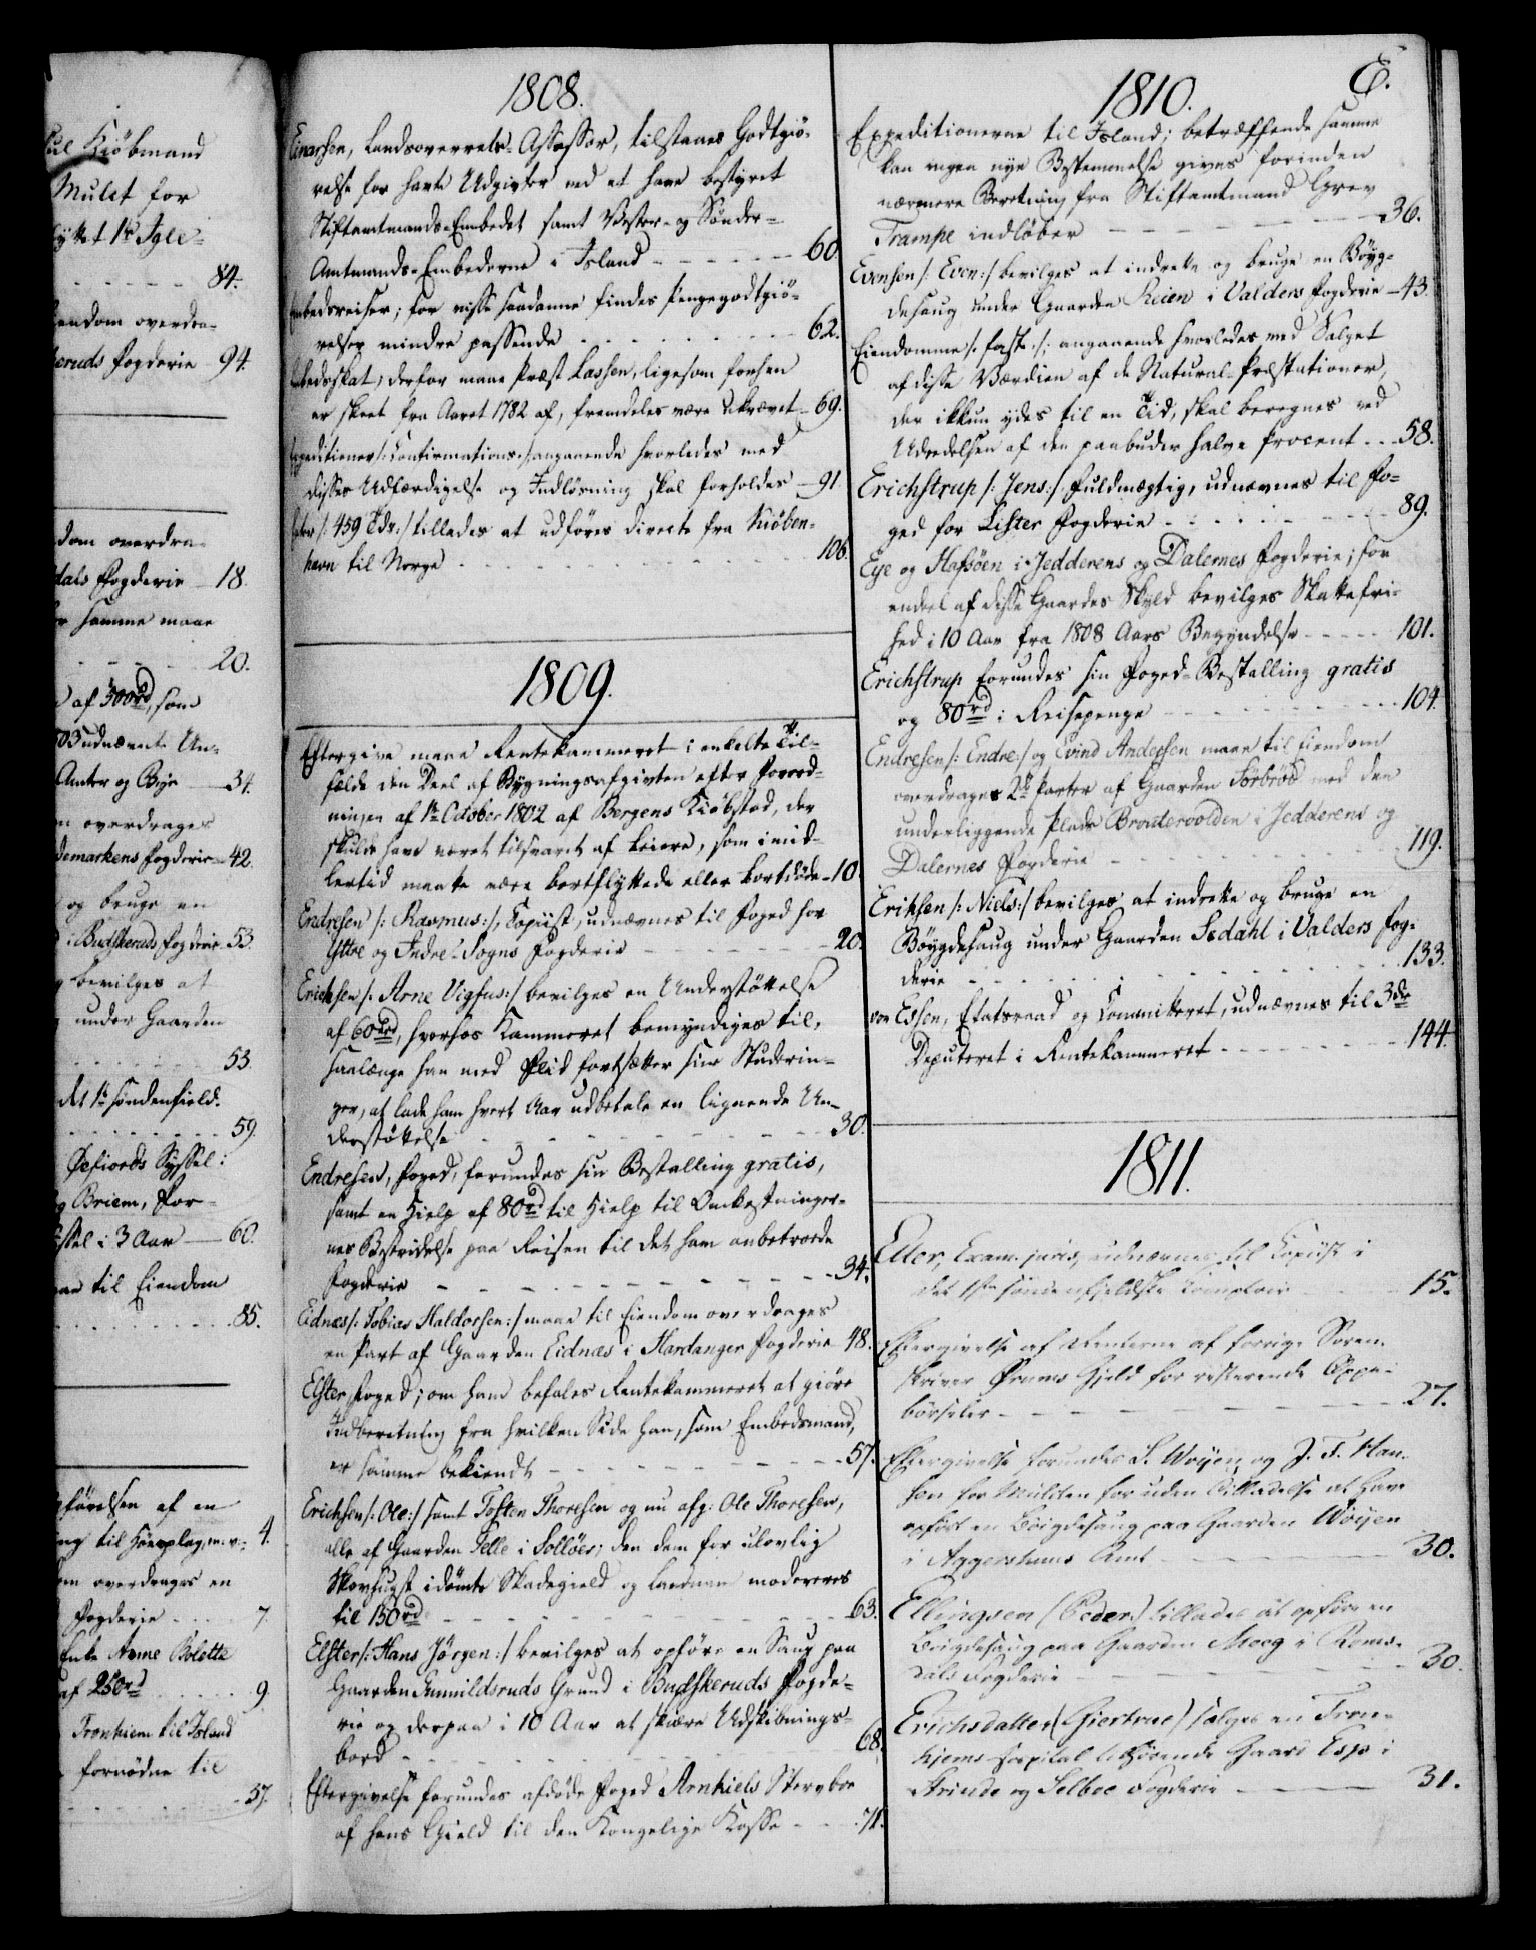 ul Kiöbmand
Mulct for
yttet 1te Igle-
84.
iendom overdra-
eruds Fogderie 94.
dom overdra-
dals Fogderie 18.
samme maae
20.
af 500rd, som
03 udnævnte Un-
Amter og Bye 34.
overdrages
demarkens Fogderie 42.
og bruge en
i Budskeruds Fogderie 53.
bevilges at
under Gaarden
53.
det 1te søndenfield.
59.
Øefiords Syssel:
Briem, For-
ssel i 3 Aar 60.
til Eiendom
85.
førelsen af en
ng til Hörplag, m.v. 4.
overdrages en
Fogderie 7.
Enke Anne Bolette
af 250rd 9.
Tronhiem til Island
fornødne til
57.
1808.
Einarsen, Landsoverrets-Assessor, tilstaaes Godtgiö-
relse for havte Udgivter ved at have bestyret
Stiftamtmands-Embedet samt Vester- og Sønder-
Amtmands-Embederne i Island 60.
Embedsreiser; for visse saadanne findes Pengegodtgiö-
relser mindre passende 62.
Embedsskat, derfor maae Præst Lassen, ligesom forhen
er skeet fra Aaret 1782 af, fremdeles være ukrævet 69.
Expeditioner /: Confirmations :/ angaaende hvorledes med
disses Udfærdigelse og Indløsning skal forholdes 91.
/: 459 Tdr :/ tillades at udføres directe fra Kiöben-
havn til Norge 106.
1809.
Eftergive maae Rentekammeret i enkelte Til-
fælde den Deel af Bygningsafgivten efter Forord-
ningen af 1te October 1802 af Bergens Kiöbstad, der
skulde have været tilsvaret af Leiere, som imid-
lertid maatte være bortflyttede eller bortdøde 10.
Endresen /: Rasmus :/, Copiist, udnævnes til Foged for
Yttre og Indre-Sogns Fogderie 20.
Erichsen /: Arne Vigfus :/ bevilges en Understöttelse
af 60rd, hvorhos Kammeret bemyndiges til,
saalænge han med Flid fortsætter sine Studerin-
ger, at lade ham hvert Aar udbetale en lignende Un-
derstöttelse 30.
Endresen, Foged, forundes sin Bestalling gratis,
samt en Hielp af 80rd til Hielp til Omkostninger-
nes Bestridelse paa Reisen til det ham anbetroede
Fogderie 34.
Eidnæs /: Tobias Haldorsen :/ maae til Eiendom overdrages
en Part af Gaarden Eidnæs i Hardanger Fogderie 48.
Elster, Foged; om ham befales Rentekammeret at giöre
Indberetning fra hvilken Side han, som Embedsmand,
er samme bekiendt 57.
Erichsen /: Ole :/ samt Tosten Thoresen og nu afg: Ole Thoresen,
alle af Gaarden Telle i Solløer; den dem for ulovlig
Skovhugst idømte Skadegield og Landnam modereres
til 150rd 63.
Elster /: Hans Jørgen :/ bevilges at opføre en Saug paa
Gaarden Gunnildsruds Grund i Budskeruds Fogde-
rie og derpaa i 10 Aar at skiære Udskibnings-
bord 68.
Eftergivelse forundes afdøde Foged Arnkiels Sterboe
af hans Gield til den Kongelige Kasse 71.
E.
1810.
Expeditionerne til Island; betræffende samme
kan ingen nye Bestemmelse gives forinden
nærmere Beretning fra Stiftamtmand Grev
Trampe indløber 36.
Evensen /: Even :/ bevilges at indrette og bruge en Böyg-
desaug under Gaarden Reien i Valders Fogderie 43.
Eiendomme /: faste :/; angaaende hvorledes med Salget
af disse Værdien af de Natural-Præstationer,
der ikkun ydes til en Tid, skal beregnes ved
Udredelsen af den paabudne halve Procent 58.
Erichstrup /: Jens :/ Fuldmægtig, udnævnes til Fo-
ged for Lister Fogderie 89.
Eye og Hafsøen i Jedderens og Dalernes Fogderie; for
endeel af disse Gaardes Skyld bevilges Skattefri-
hed i 10 Aar fra 1808 Aars Begyndelse 101.
Erichstrup forundes sin Foged-Bestalling gratis
og 80rd i Reisepenge 104.
Endresen /: Endre :/ og Evind Andersen maae til Eiendom
overdrages 2de Parter af Gaarden Sorbröd med den
underliggende Plads Brautervolden i Jedderens og
Dalernes Fogderie 119.
Eriksen /: Niels :/ bevilges at indrette og bruge en
Böygdesaug under Gaarden Sedahl i Valders Fog-
derie 133.
von Essen, Etatsraad og Committeret, udnævnes til 3die
Deputeret i Rentekammeret 144.
1811.
Eller, Exam. juris, udnævnes til Copiist i
det 1ste søndenfieldske Comptoir 15.
Eftergivelse af Renterne af forrige Soren-
skriver Ørums Gield for resterende Oppe-
børseler 27.
Eftergivelse forundes S. Woyen og J. T. Han-
sen for Mulcten for uden Tilladelse at have
opført en Boigdesaug paa Gaarden Woyen
i Aggershuus Amt 30.
Ellingsen (Peder) tillades at opføre en
Boigdesaug paa Gaarden Moeg i Roms-
dals Fogderie 30.
Erichsdatter (Giertrue) sælges en Tron-
hiems Hospital tilhørende Gaard Esp i
Strinde og Selboe Fogderie 31.